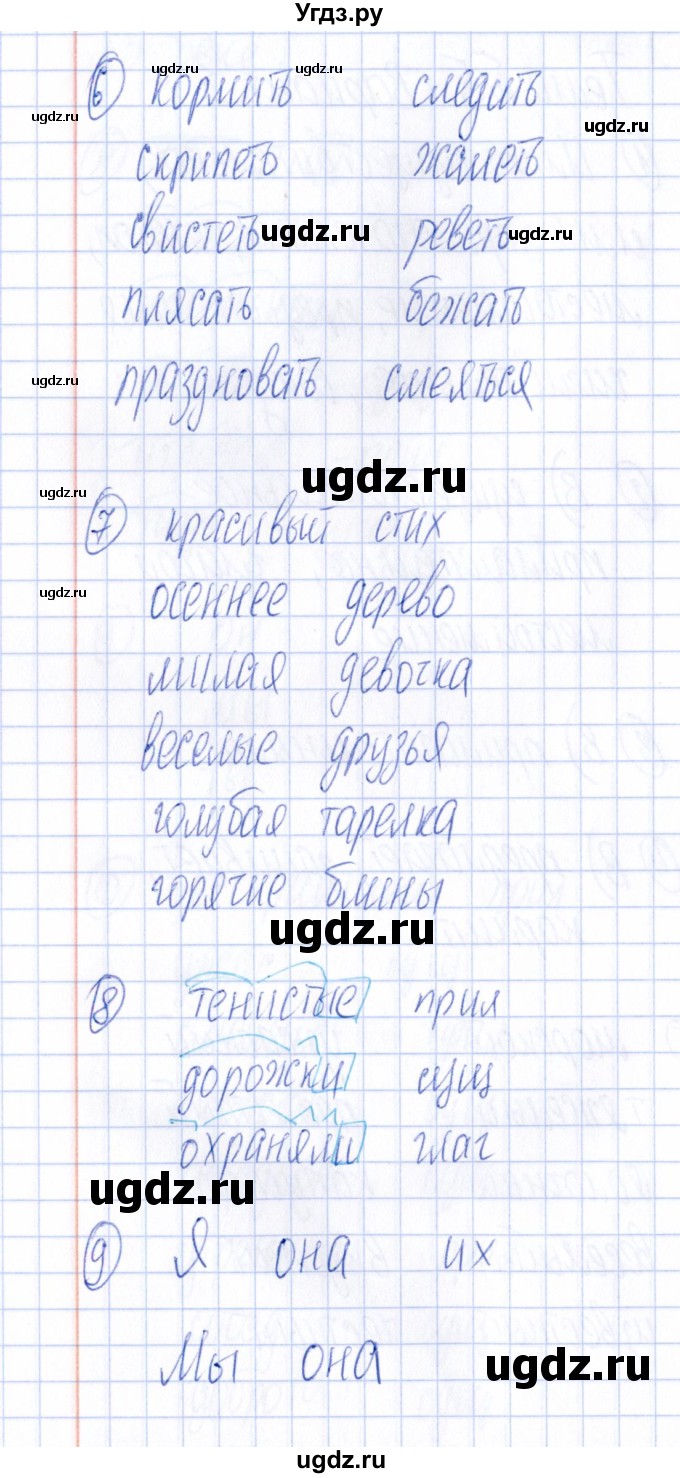 Угдз.ру
ugdz.ru ugdz.ru
6 кормить следить
ugdz.ru ugdz.ru
скрипеть жалеть
свистеть ugdz.ru реветь ugdz.ru
плясать бежать
ugdz.ru праздновать смеяться
ugdz.ru
ugdz.ru
7 красивый стих
ugdz.ru осеннее дерево
милая девочка
веселые друзья
голубая тарелка
горячие блины
ugdz.ru
8 тенистые прил
дорожки сущ
охраняли глаг
ugdz.ru
9 Я она их
Мы она ugdz.ru
ugdz.ru